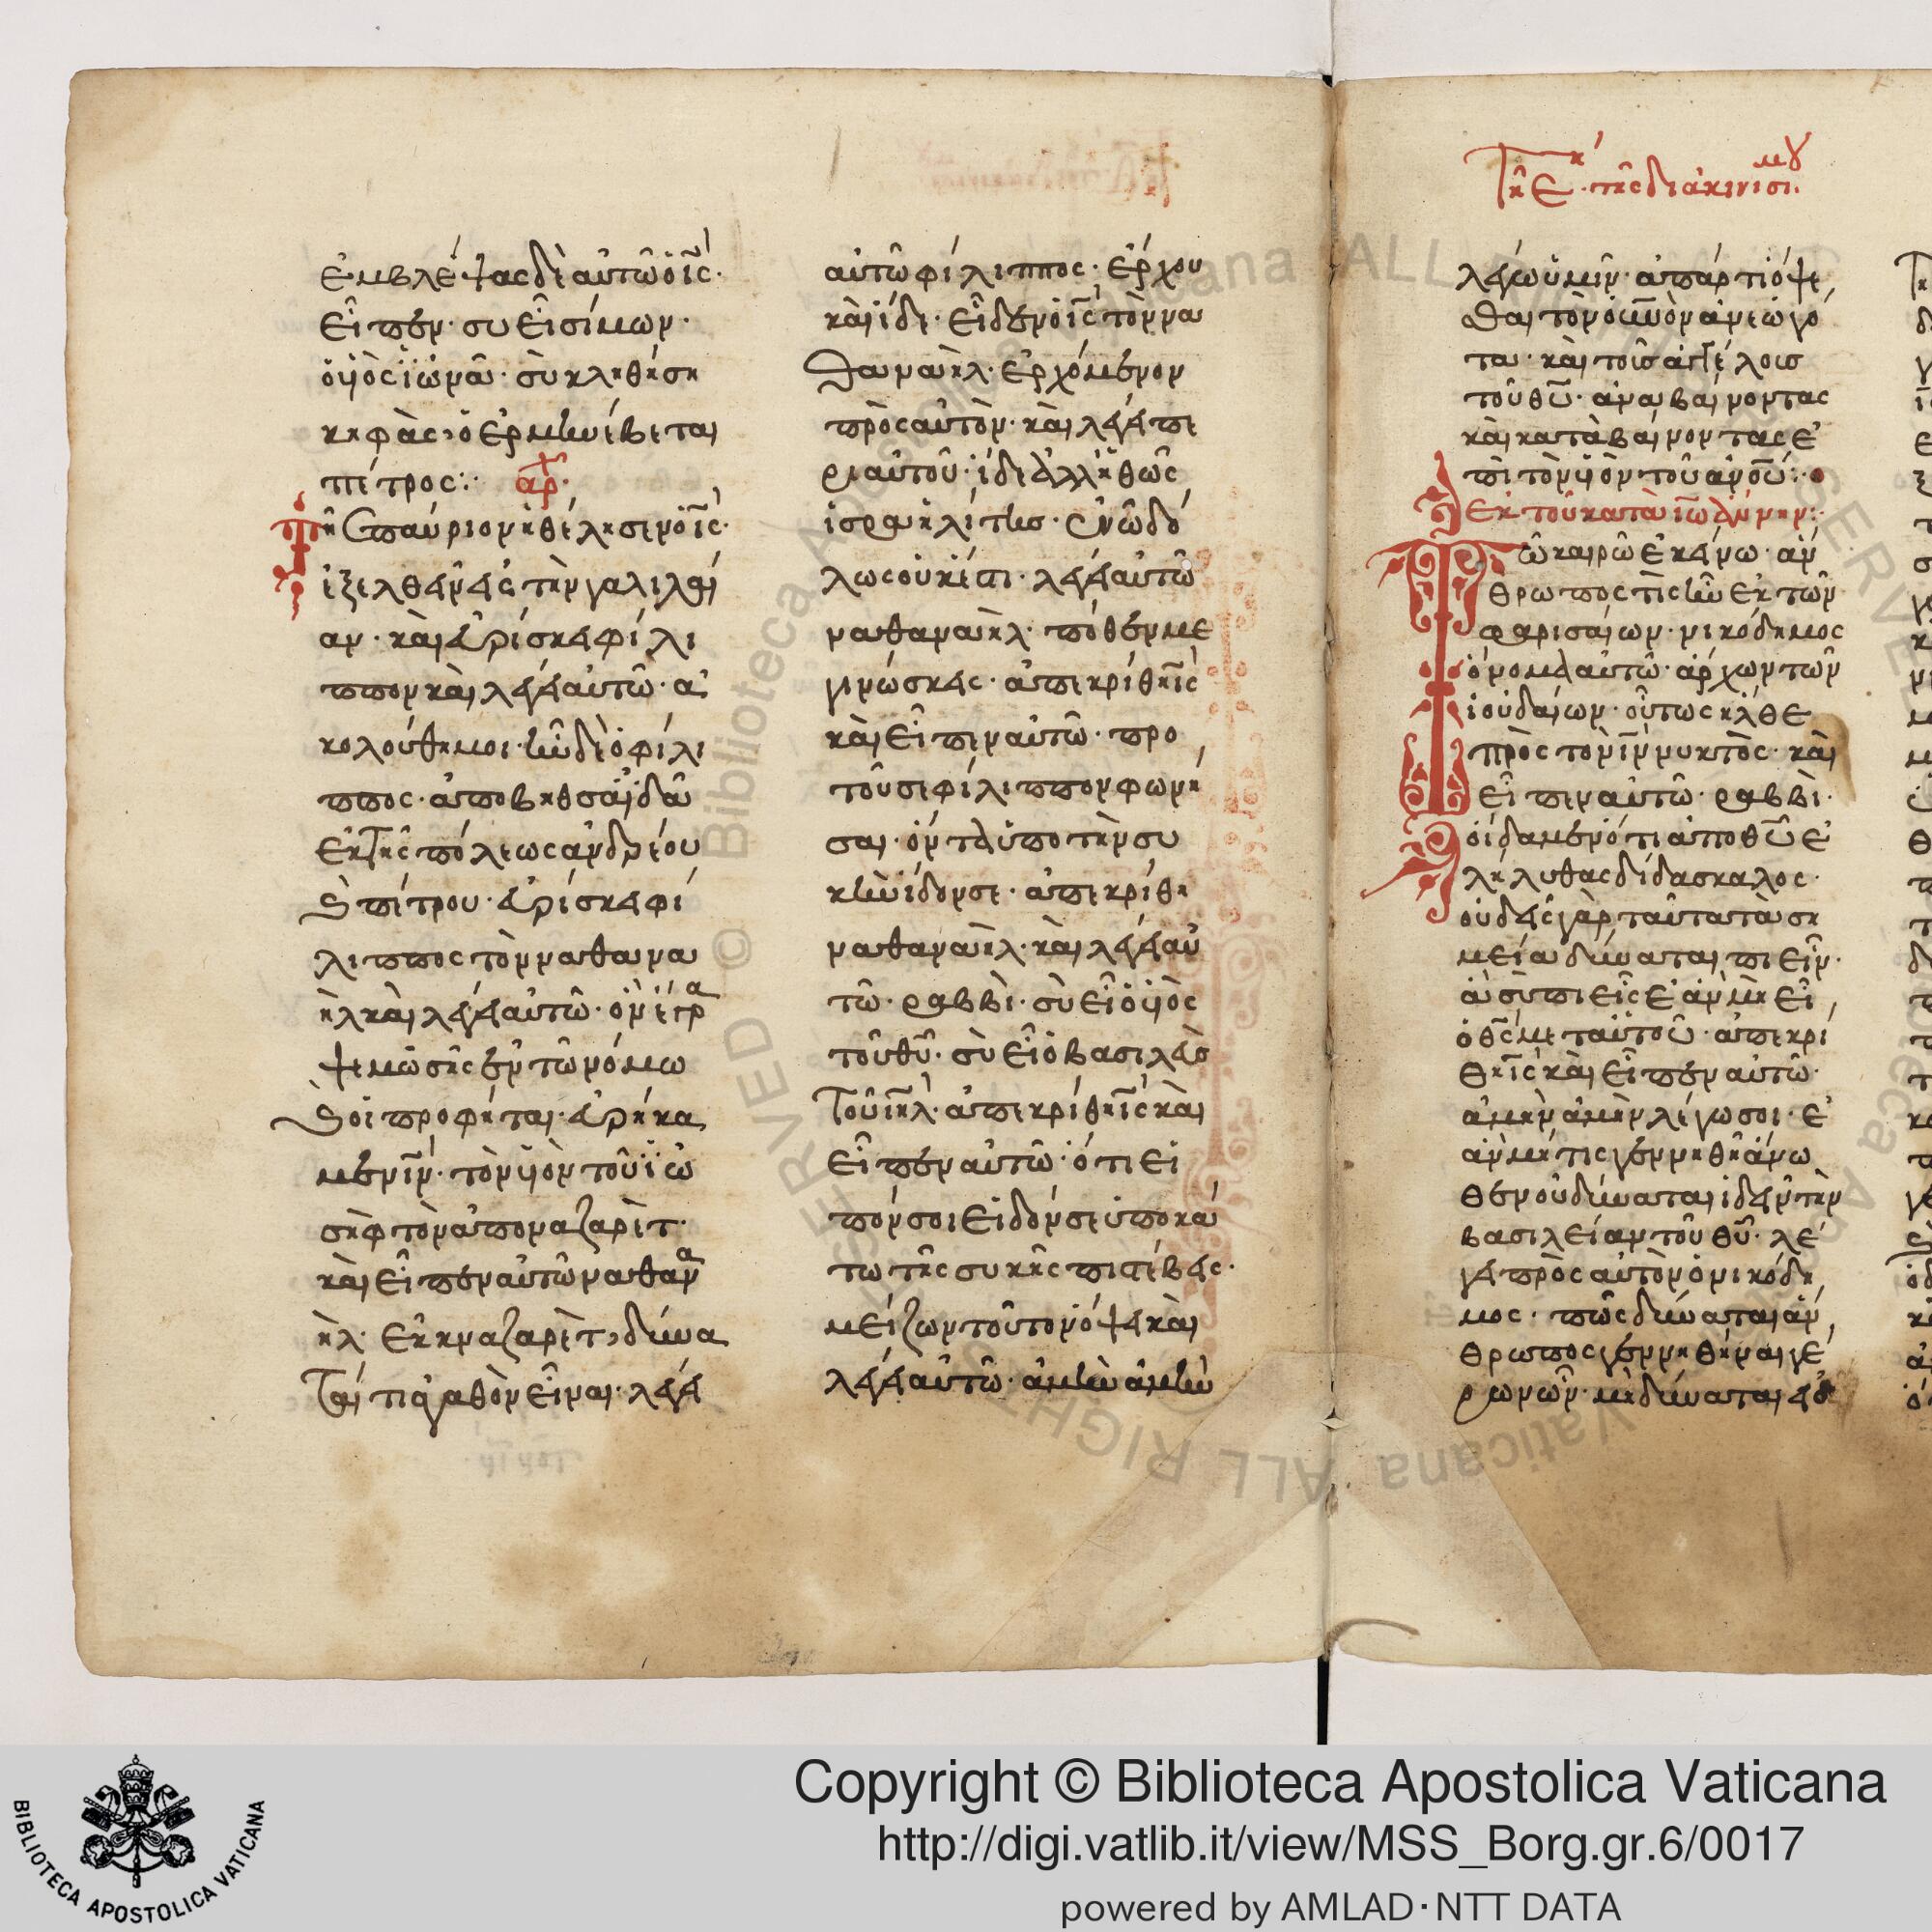 ἐμβλέψας δὲ αὐτῶ ὁ ις̅·
εἶπεν· συ εἶ σίμων·
ὁ υἱὸς ϊωνᾶ· σὺ κληθήση
κηφὰς, ὁ ἑρμηνέβεται
πέτρος:· ἀρ̅χ·
Τῆ ἐπαύριον ἠθέλησεν ὁ ις̅·
ἐξελθεῖν εἰς τὴν γαλιλαί
αν· καὶ εὑρίσκει φί λι
ππον καὶ λέγει αὐτῶ· ἀ
κολούθη μοι· ἦν δὲ ὁ φί λι
ππος· ἀπο βηθσαϊδᾶ
ἐκ τῆς πόλεως ἀνδρέου
ϗ πέτρου· εὑρίσκει φί
λιππος τὸν ναθανα
ὴλ καὶ λέγει αὐτῶ· ὁν ἔγρα
ψε μωσῆς ἐν τῶ νόμω
ϗ οἱ προφῆται· εὑρήκα
μεν ιν̅· τὸν υἱὸν τοῦ ϊω
σὴφ τὸν ἀπο ναζαρὲτ·
καὶ εἶπεν αὐτῶ ναθανα
ὴλ· ἐκ κναζαρὲτ, δύνα
ται τι ἀγαθὸν εἶναι· λέγει
αὐτῶ φίλιππος· ἔρχου
καὶ ἴδε· εἶδεν ὁ ις̅ τὸν να
θαναὴλ· ἐρχόμενον
πρὸς αὐτὸν· καὶ λέγει πε
ρι αὐτοῦ· ἴδε ἀλληθῶς
ἰσραηλίτης· ἐν ῶ δό
λως οὐκ ἔστι· λέγει αὐτῶ
ναθαναὴλ· πόθεν με
γινώσκεις· ἀπεκρίθη ις̅
καὶ εἶπεν αὐτῶ· προ
τοῦ σε φίλιππον φωνῆ
σαι· ὄντα ὑπο τὴν συ
κὴν ἴδον σε· ἀπεκρίθη
ναθαναὴλ· καὶ λέγει αὐ
τῶ· ραββὶ· σὺ εἶ ὁ υἱὸς
τοῦ θυ̅· σὺ εἶ ὁ βασιλεὺσ
τοῦ ιη̅λ· ἀπεκρίθη ις̅ καὶ
εἶπεν αὐτῶ· ότι εἶ
πόν σοι εἰδόν σε ὑποκά
τω τῆς συκῆς πιστέβεις·
μείζων τοῦτον ὄψει καὶ
λέγει αὐτῶ· ἀμὴν ἀμὴν
Τῆ κ Ε· τῆς διακινισί μου·
λέγω ὑμῖν· ἀπάρτι ὄψε
σθαι τὸν οὐνον ἀνεωγό
τα· καὶ τοῦσ ἀγγέλουσ
τοῦ θυ̅· ἀναβαίνοντας
καὶ καταβαίνοντας ἐ
πὶ τὸν υἱὸν τοῦ ανου̅:·
ἐκ τοῦ κατὰ ιω̅άννην:·
Τῶ καιρῶ ἐκείνω· ἄν
θρωπος τὶς ἦν ἐκ τῶν
φαρισαίων· νικόδημος
ὄνομα αὐτῶ· ἄρχων τῶν
ἰουδαίων· οὗτως ἦλθε
πρὸς τὸν ιν̅ νυκτὸς· καὶ
εἶπεν αὐτῶ· ραββὶ·
οἴδαμεν ὁτι ἀπο θυ̅ ἐ
λήλυθας διδάσκαλος·
οὐδεὶς γὰρ ταῦτα τὰ ση
μεῖα δύναται ποιεῖν·
ἁ σὺ ποιεῖς ἐὰν μὴ εἶ
ὁ θς̅ μετ αὐτοῦ· ἀπεκρί
θη ις̅ καὶ εἶπεν αὐτῶ·
ἀμὴν ἀμὴν λέγω σοι· ἐ
ὰν μή τις γεννηθῆ ἄνω
θεν οὐ δύναται ἰδεῖν τὴν
βασιλείαν τοῦ θυ̅· λέ
γει πρὸς αὐτὸν ὁ νικόδη
μος· πῶς δύναται ἄν
θρωπος γεννηθῆναι γέ
ρων ὢν· μὴ δύναται εἰσ
BIBLIOTECA APOSTOLICA VATICANA
Copyright © Biblioteca Apostolica Vaticana
http://digi.vatlib.it/view/MSS_Borg.gr.6/0017
powered by AMLAD·NTT DATA